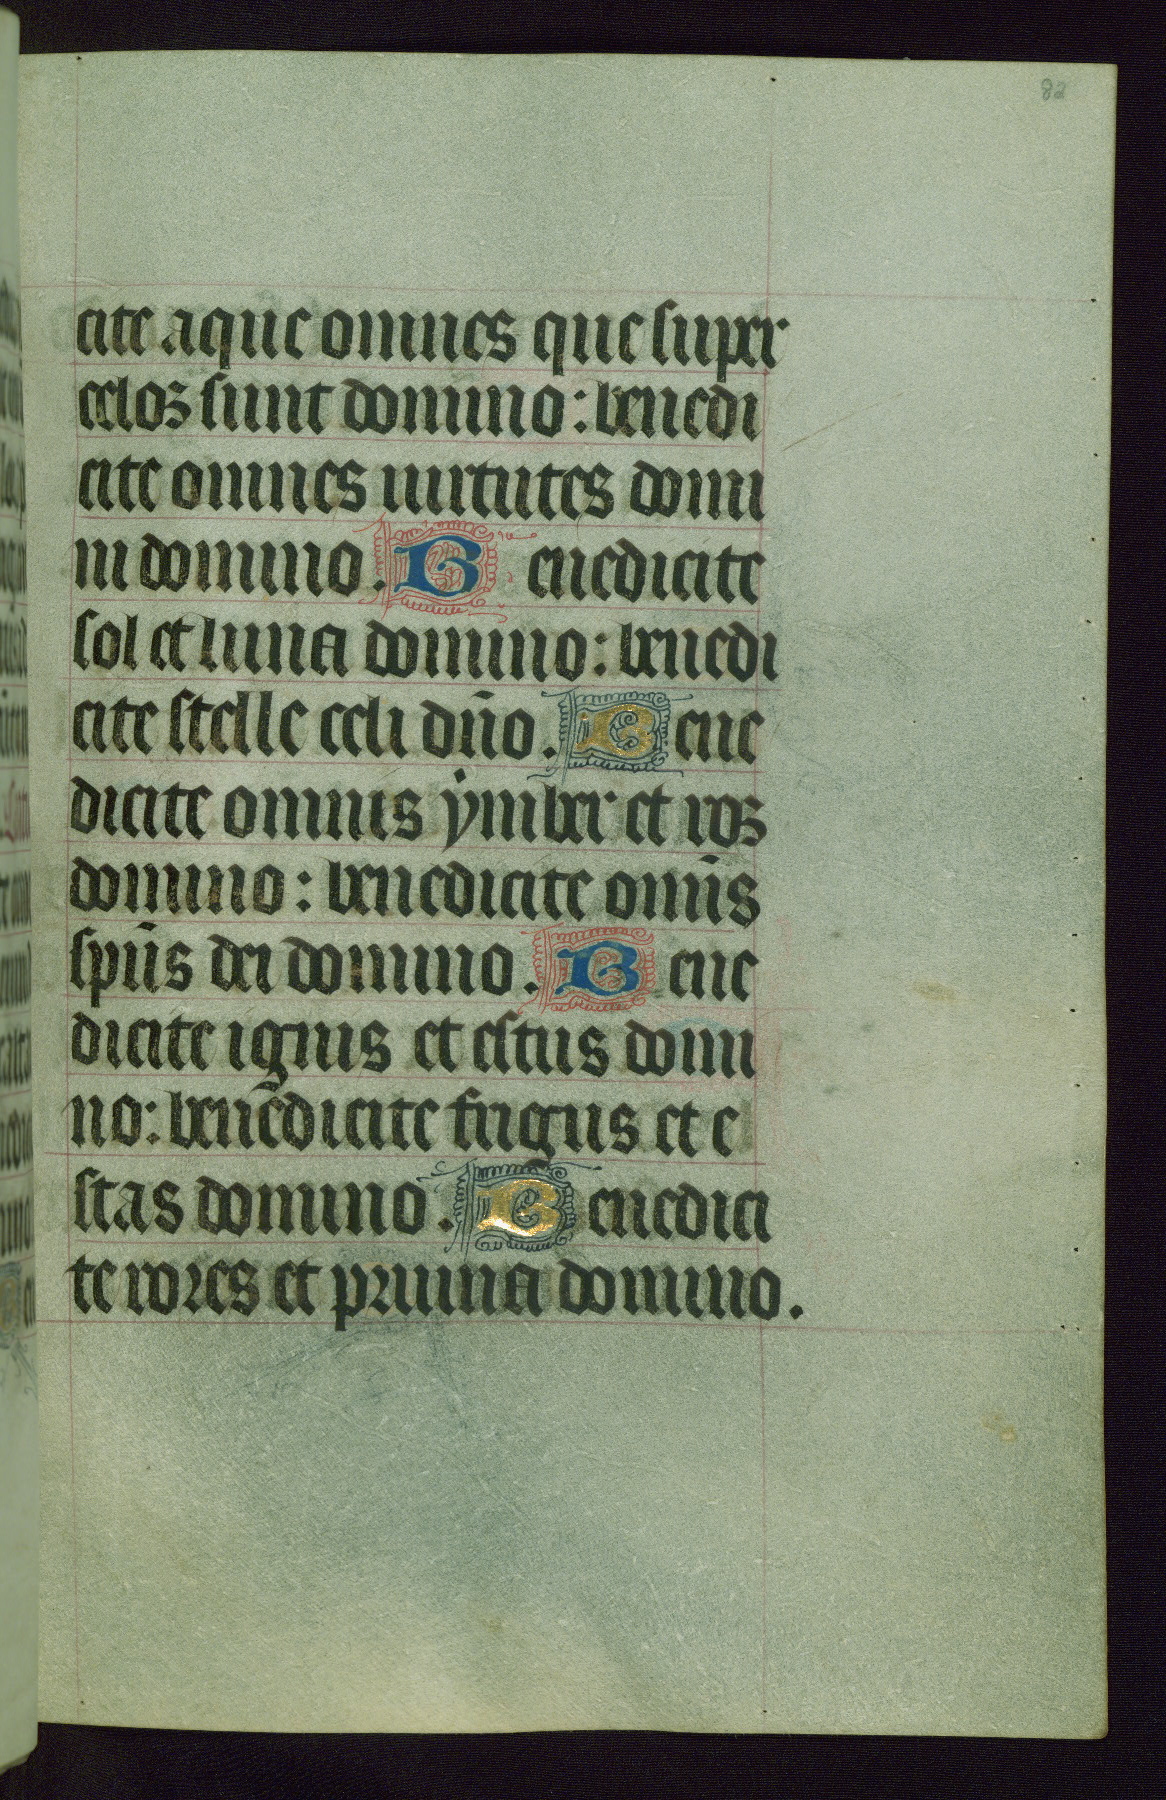 82
cite aque omnes que super
celoꝝ sunt domino: benedi
cite omnes uirtutes domi
ni domino. Benedicite
sol et luna domino: benedi
cite stelle celi dn̄o. Bene
dicite omnis ẏmber et ros
domino: benedicite omīs
spūs dei domino. Bene
dicite ignis et estus domi
no: benedicite frigus et e
stas domino. Benedici
te rores et pruina domino.